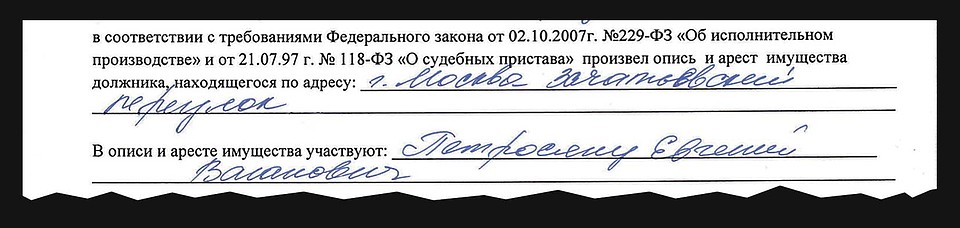 в соответствии с требованиями Федерального закона от 02.10.2007г. №229-ФЗ «Об исполнительном
производстве» и от 21.07.97 г. № 118-ФЗ «О судебных пристава» произвел опись и арест имущества
должника, находящегося по адресу: г. Москва Зачатьевский
переулок
В описи и аресте имущества участвуют: Петросяну Евгений
Ваганович